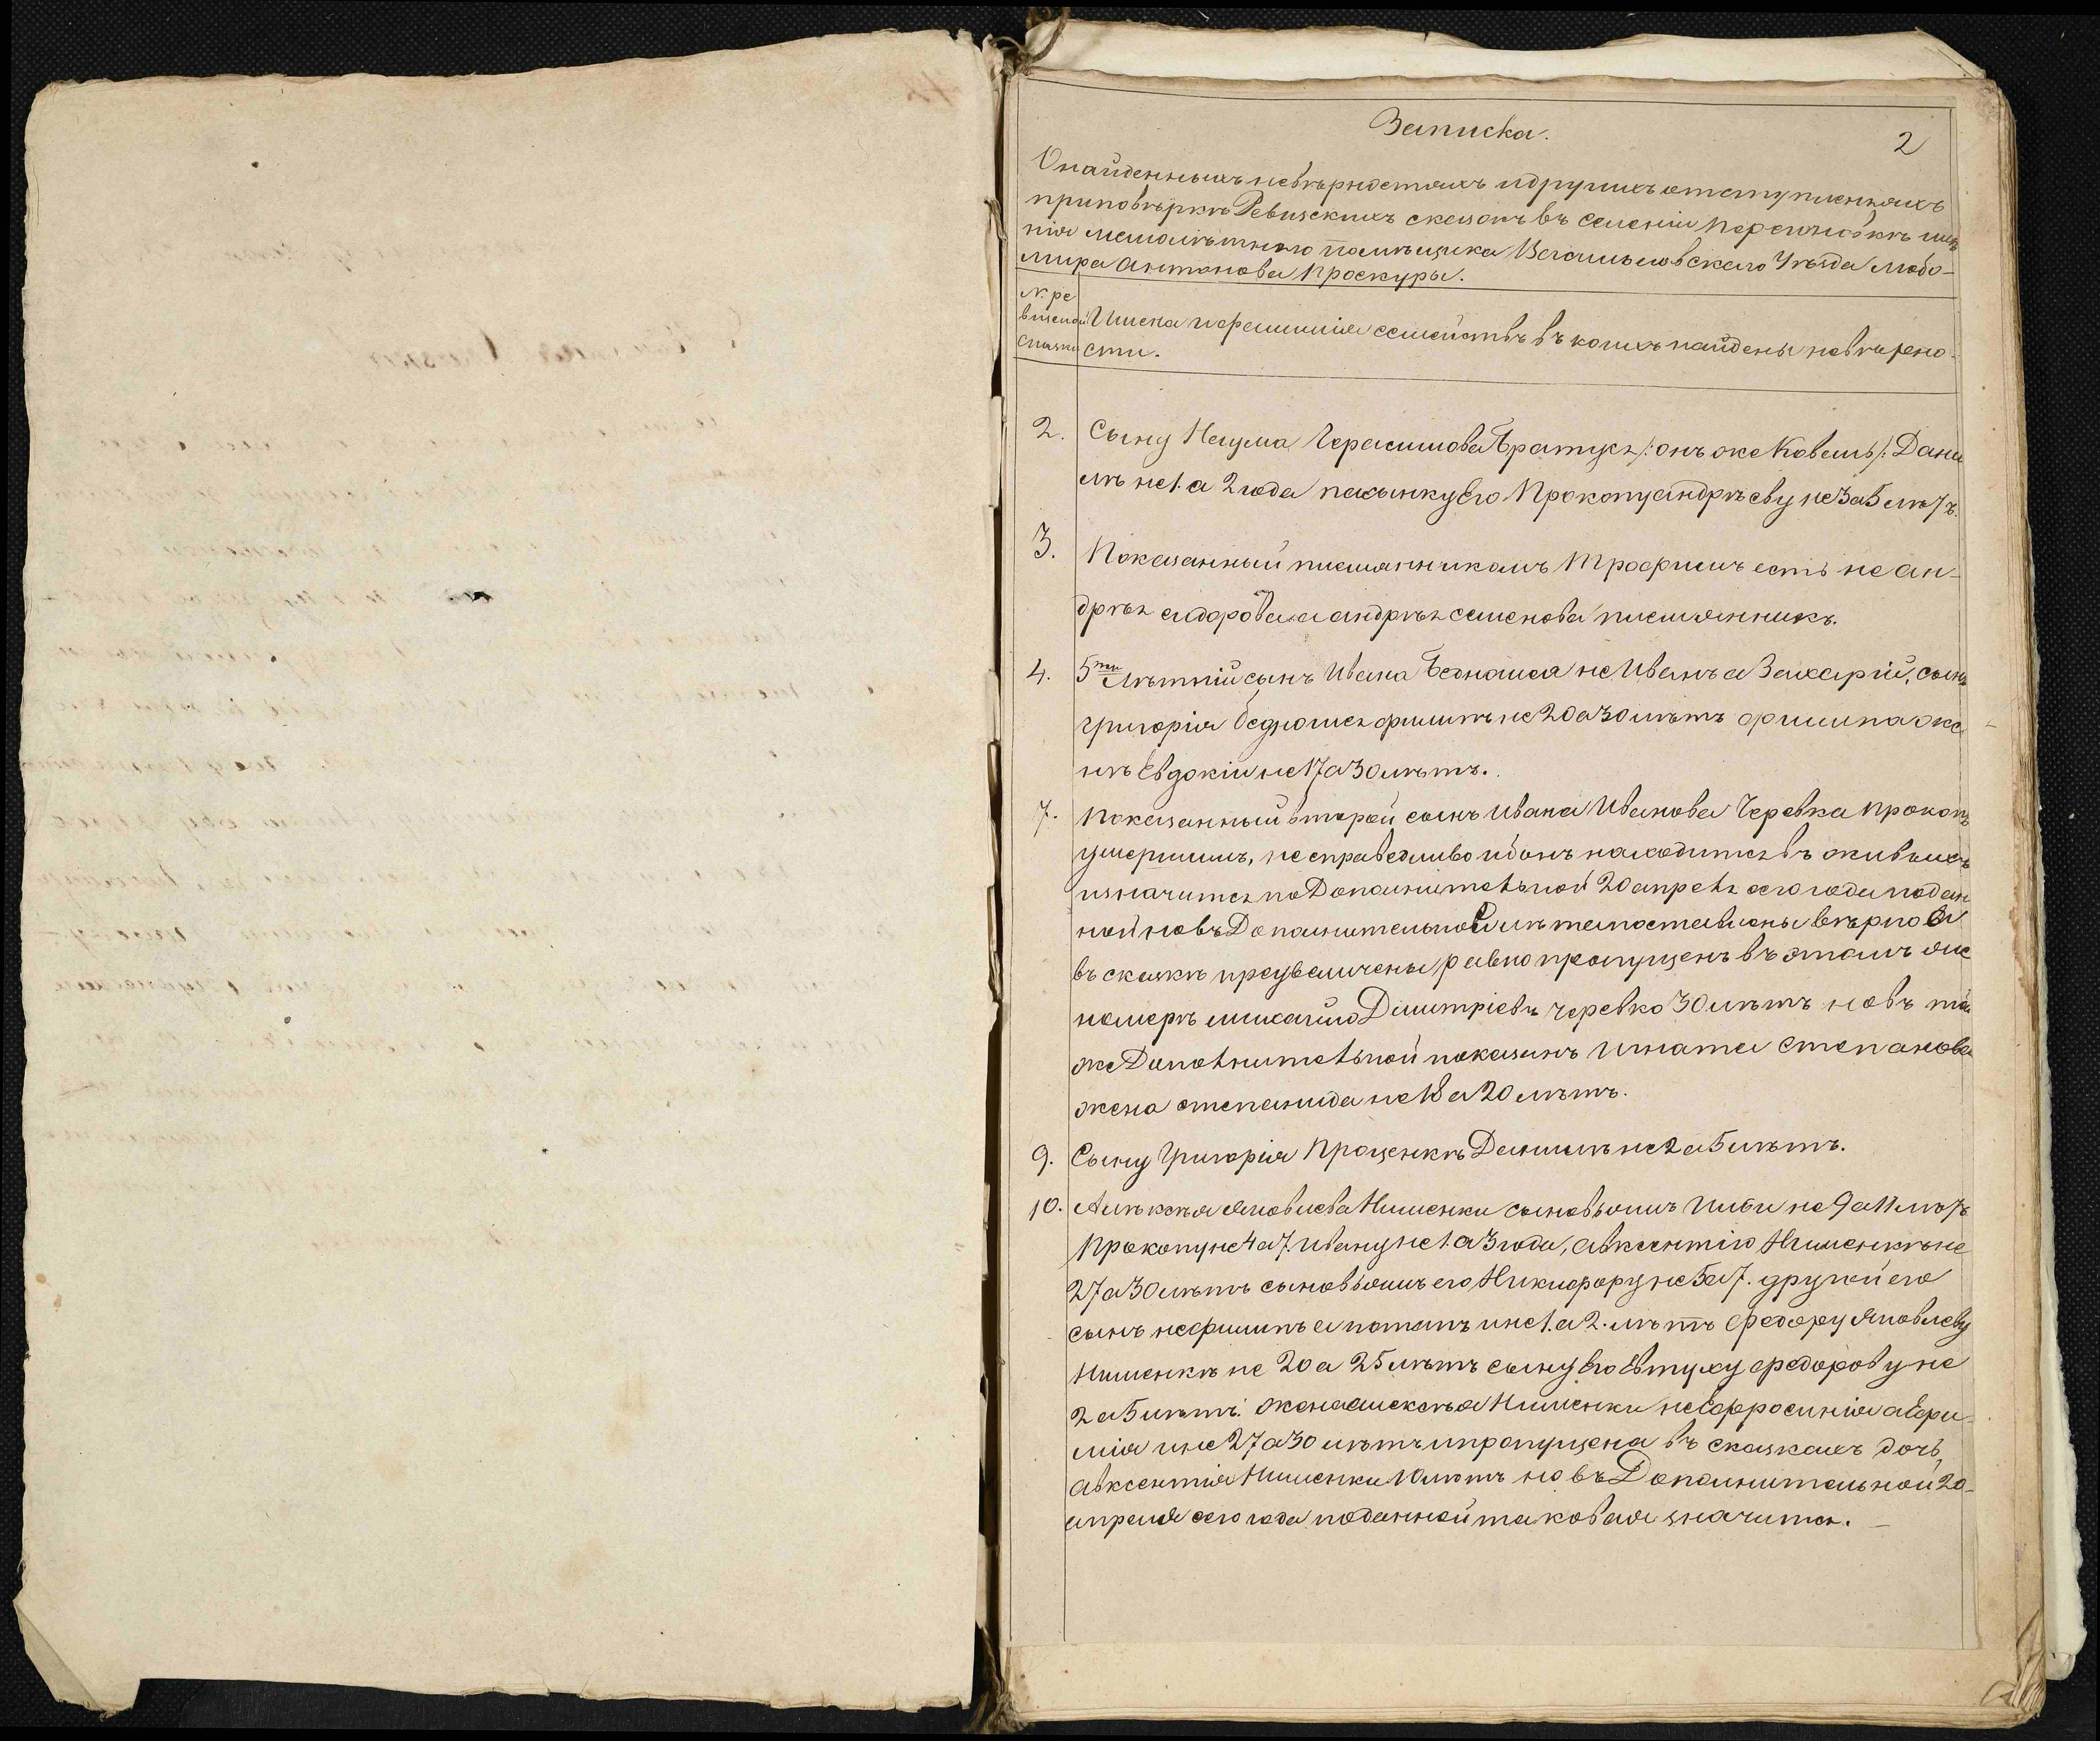 Записка.
2
О найденныхъ невѣрностяхъ и другихъ отступленіяхъ
при повѣркѣ Ревизскихъ сказокъ въ селеніи
нія малолѣтнаго помѣщика Васильковскаго Уѣзда Любо-
мира Антонова Проскуры.
N. ре
визской
сказки
Имена и фамиліи семействъ въ коихъ найдены невѣрно-
сти.
2. Сыну Наума Герасимова Братусь /: онъ же Коваль /: Дани
лѣ не 1. а 2 года пасынку Его Прокопу Андрѣеву не 3 а 5 лѣтъ.
3. Показанный племянникомъ Трофимъ есть не Ан-
дрѣя Сидорова а Андрѣя Семенова племянникъ.
4. 5ти Лѣтній сынъ Ивана не Иванъ а Захарій, сынъ
Григорія не 20 а 30 лѣтъ Филипа же
нѣ Евдокіи не 17 а 30 лѣтъ.
7. Показанный второй сынъ Ивана Иванова Черевка Прокопъ
умершимъ, не справедливо ибо онъ находится въ живыхъ
и значится по Дополнительной 20 апреля сего года подан
ной но въ Дополнительной лѣта поставлены вѣрно а
въ сказкѣ преувеличены равно пропущенъ въ этомъ же
номерѣ Михайло Димитріевъ Черевко 30 лѣтъ но въ той
же Дополнительной показанъ Игната Степанова
жена Степанида не 18 а 20 лѣтъ.
9. Сыну Григорія Проценкѣ Данилѣ не 2 а 5 лѣтъ.
10. Алѣксѣя Яковлева Нименки сыновьямъ не 9 а 11 лѣтъ
Прокопу не 4 а 7. Ивану не 1. а 3 года, Авксентію Нименкѣ не
27 а 30 лѣтъ сыновьямъ его Никифору не 5 а 7. другой его
сынъ не Филипъ а Потапъ и не 1. а 2. лѣтъ Федору Яковлеву
Нименкѣ не 20 а 25 лѣтъ сыну Его Евтуху Федорову не
2 а 5 лѣтъ. жена Алексѣя Нименки не Ефросинія а Ефи-
мія и не 27 а 30 лѣтъ и пропущена въ сказкахъ дочь
Авксентія Нименки лѣтъ но въ Дополнительной 20
апреля сего года поданной таковая значится.